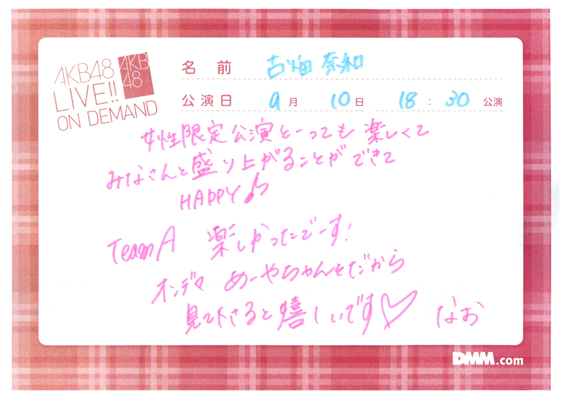 AKB48
LIVE!!
ON DEMAND
AKB
48
名 前 古畑 奈和
公演日 9月 10日 18:30 公演
女性限定公演とーっても楽しくて
みなさんと盛り上がることができて
HAPPY♪
TeamA 楽しかったでーす!
オンデマ めーやちゃんせだから
見て下さると嬉しいです♡ なお
DMM.com